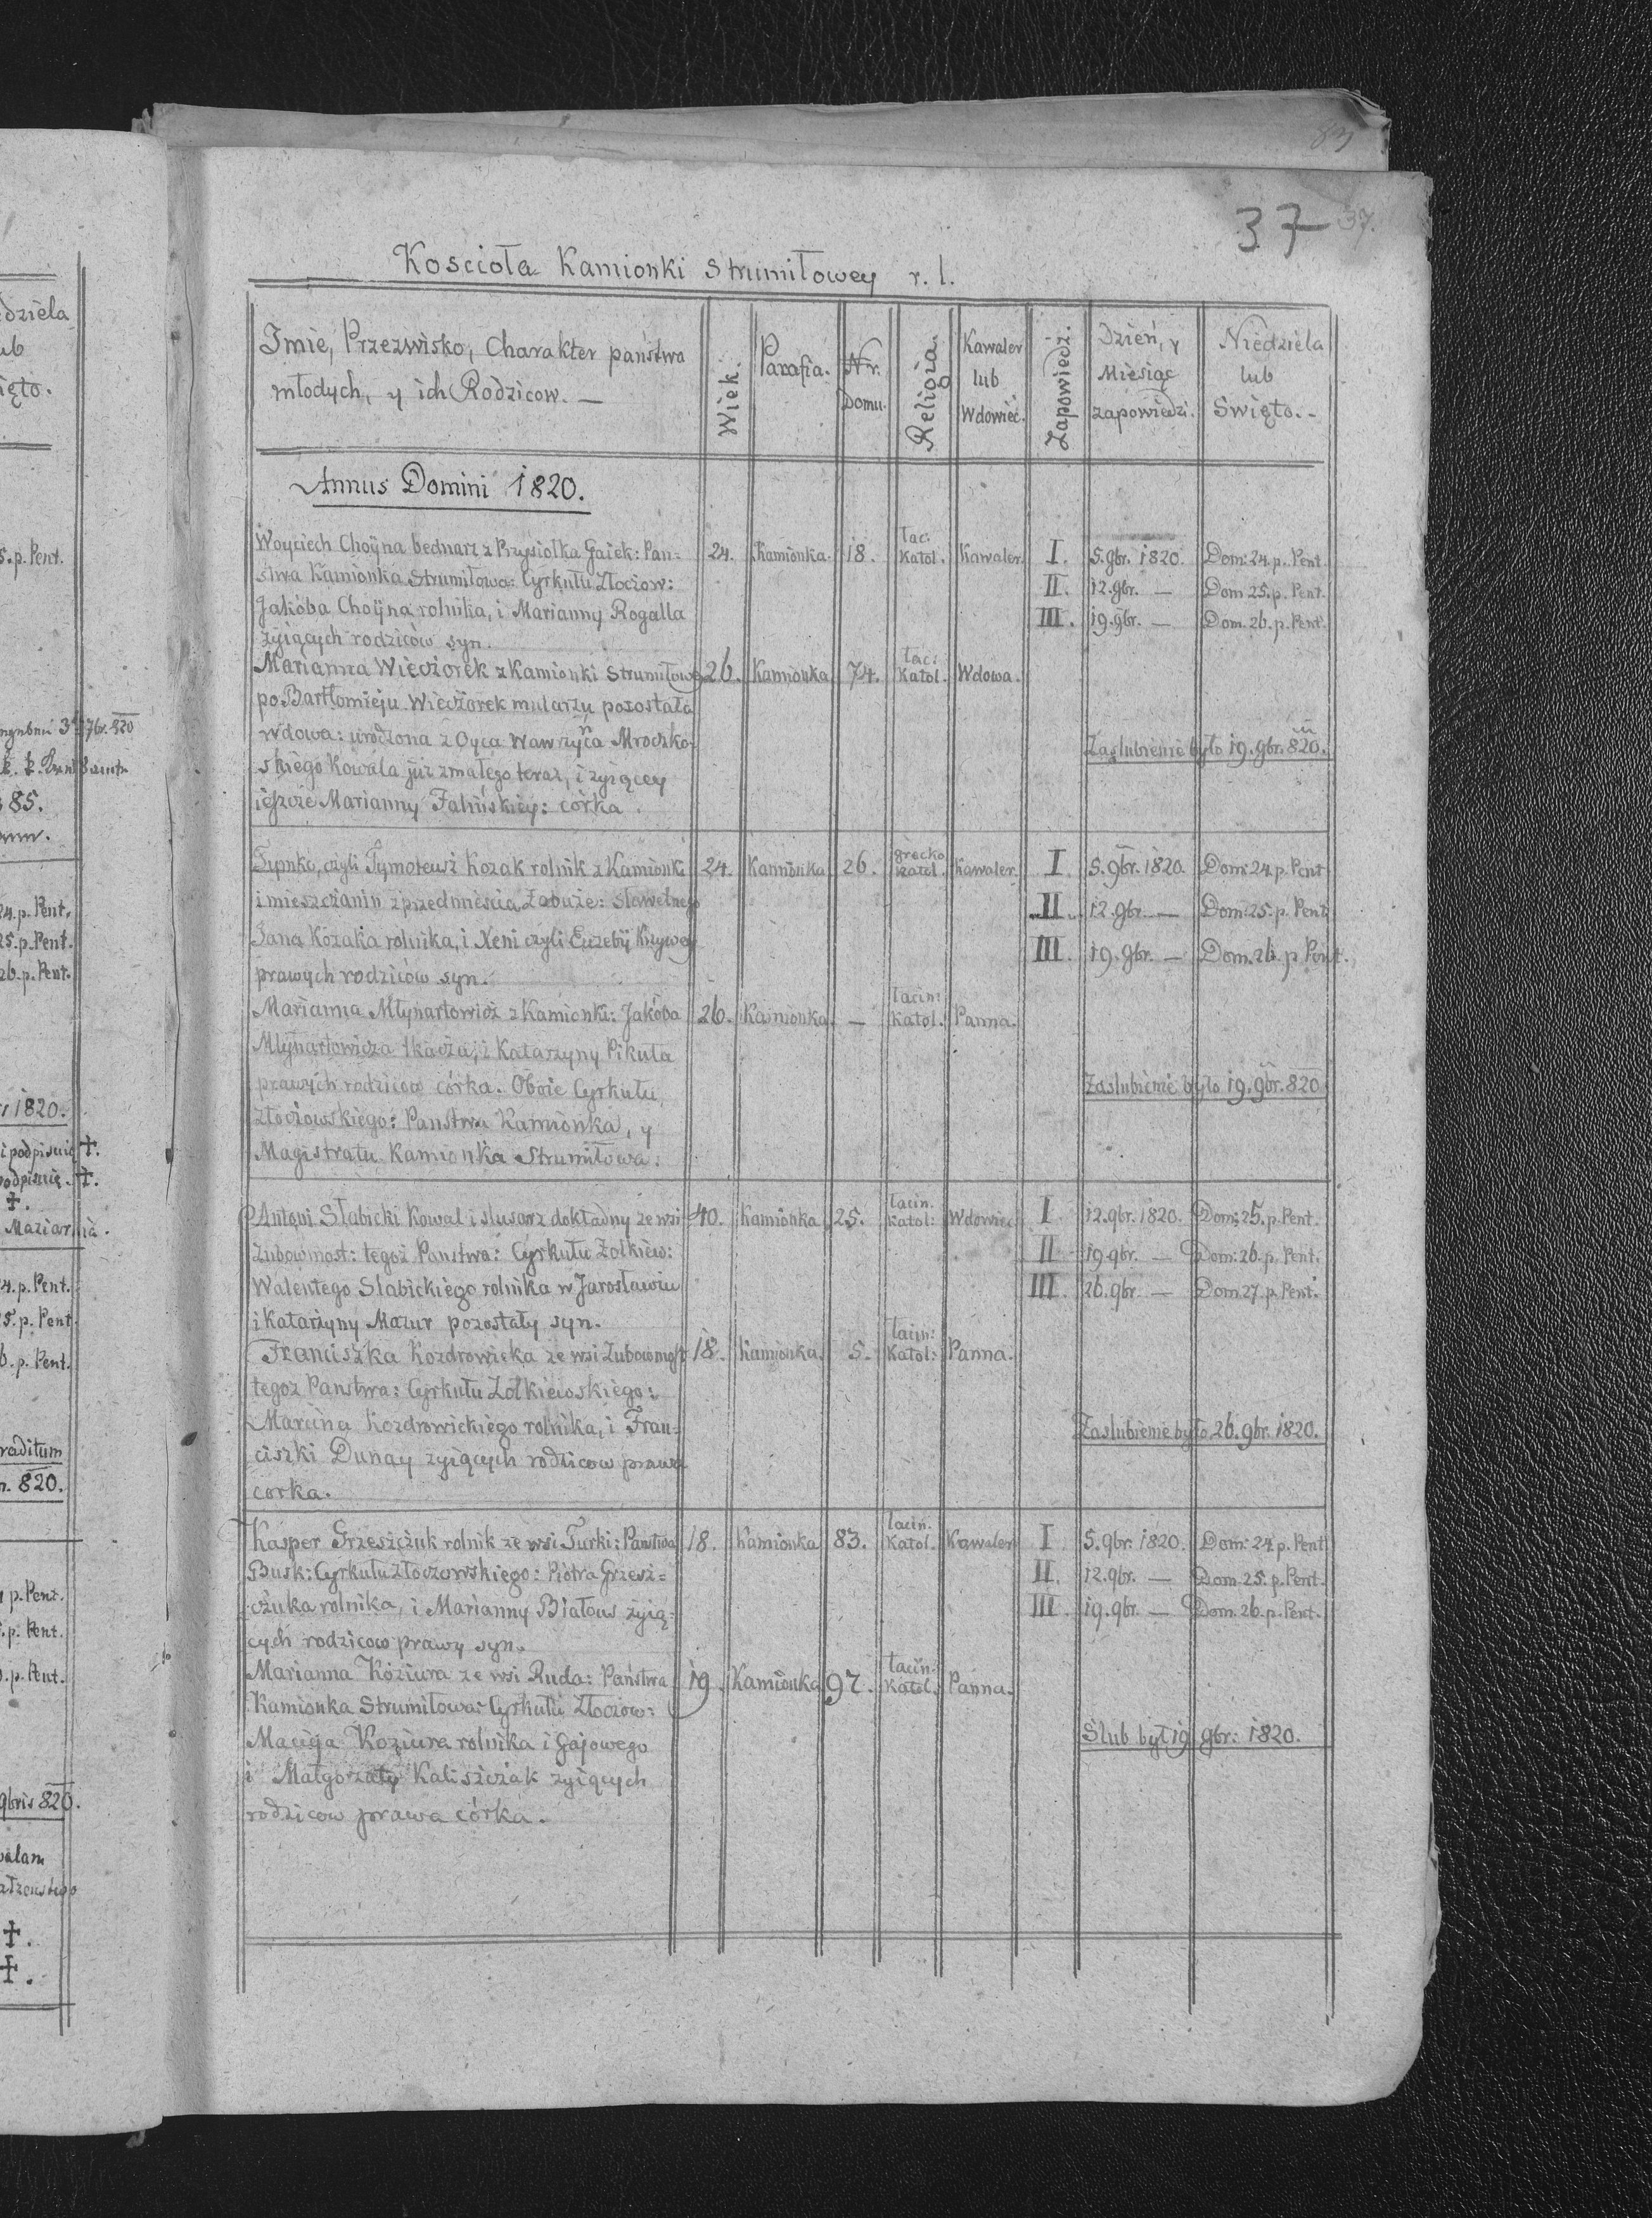 83
37 37.
Kościoła Kamionki Strumiłowey r. l.
Imie, Przezwisko, Charakter państwa
młodych, y ich Rodzicow. —
Wiek.
Parafia.
Nr.
Domu.
Religia.
Kawaler
lub
Wdowiec.
Zapowiedz.
Dzień, y
Miesiąc
zapowiedzi.
Niedziela
lub
Swięto. -
Annus Domini 1820.
Woyciech Choÿna bednarz z Prysiołka Gaiek: Pan= 24. Kamionka. 18. łac: Katol. Kawaler. I. 5. 9br. 1820. Dom: 24. p. Pent.
stwa Kamionka Strumiłowa: Cyrkułu Złoczow: II. 12. 9br. — Dom 25. p. Pent.
Jakóba Choÿna rolnika, i Marianny Rogalla III. 19. 9br. — Dom. 26. p. Pent.
żyiących rodziców syn.
Marianna Wieczorek z Kamionki Strumiłowey 26. Kamionka 74. łac: Katol. Wdowa.
po Bartłomieju Wieczorek mularzu pozostała
wdowa: urodzona z Oyca Wawrzyńca Mroczko-
skiego Kowala już zmałego teraz, i zyiącey Zaslubienie było 19. 9br. 820.
ieszcze Marianny Falińskiey: córka.
Tymko, czyli Tymoteusz Kozak rolnik z Kamionki 24. Kamionka 26. grecko katol. Kawaler. I 5. 9br. 1820. Dom: 24. p. Pent
i mieszczanin z przedmieścia Zabuże: Sławetnego II. 12. 9br. — Dom: 25. p. Pent
Jana Kozaka rolnika, i Xeni czyli Euzebÿ Krywey III. 19. 9br. — Dom. 26. p Pent.
prawych rodziców syn.
Marianna Młynartowicz z Kamionki: Jakóba 26. Kamionka. — łacin: Katol. Panna.
Młynartowicza tkacza, i Katarzyny Pikuła
prawych rodzicow córka. Oboie Cyrkułu, Zaslubienie było 19. 9br. 820
Złoczowskiego: Panstwa Kamionka, y
Magistratu Kamionka Strumiłowa.
Antoni Słabicki Kowal i slusarz dokładny ze wsi 40. Kamionka 25. łacin. Katol: Wdowiec I. 12. 9br. 1820. Dom: 25. p. Pent.
Zubowmost: tegoż Panstwa: Cyrkułu Zolkiew: II 19. 9br. — Dom: 26. p. Pent.
Walentego Słabickiego rolnika w Jarosławiu III. 26. 9br. — Dom 27. p. Pent.
i Katarzyny Mazur pozostały syn.
Franciszka Kozdrowicka ze wsi Zubowmost 18. Kamionka. 5. łacin: Katol: Panna.
tegoż Panstwa: Cyrkułu Zolkiewskiego:
Marcina Kozdrowickiego rolnika, i Fran- Zaslubienie było 26. 9br. 1820.
ciszki Dunay zyiących rodzicow prawa
corka.
Kasper Grzeszczuk rolnik ze wsi Turki: Panstwa 18. Kamionka 83. łacin. Katol. Kawaler I 5. 9br. 1820. Dom: 24. p. Pent
Busk: Cyrkułu Złoczowskiego: Piotra Grzesz= II. 12. 9br. — Dom. 25. p. Pent.
czuka rolnika, i Marianny Białous żyią= III 19. 9br. — Dom. 26. p. Pent.
cych rodzicow prawy syn.
Marianna Koziura ze wsi Ruda: Państwa 19. Kamionka 97. łacin. Katol. Panna.
Kamionka Strumiłowa: Cyrkułu Złoczow:
Macieja Koziura rolnika i Gajowego Slub był 19 9br: 1820.
i Małgorzaty Kaliszczak zyiących
rodzicow prawa córka.